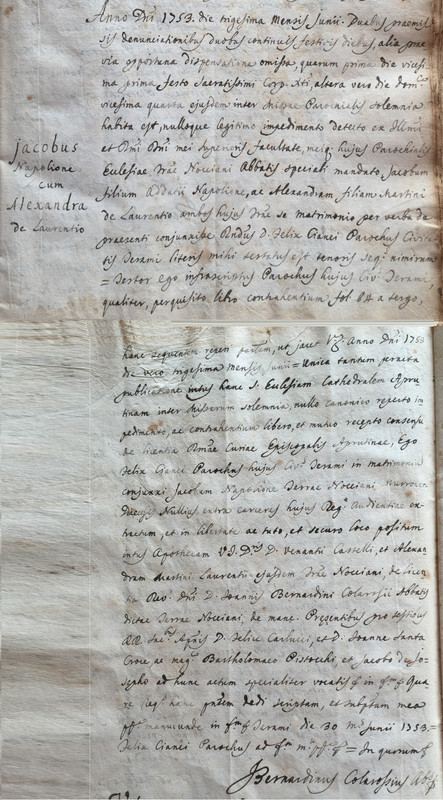 Jacobus
Napolione
cum
Alexandra
de Laurentio
Anno Dñi 1753. die trigesima Mensis Junii. Duabus praemis
sis denunciationibus duobus continuis festivis diebus, alia prae
via opportuna dispensatione omissa, quarum prima die vicesi
ma prima festo Sacratissimi Corp. Xti, altera vero die Domca
vicesima quarta ejusdem inter Missae Parochialis solemnia
habita est, nulloque legitimo impedimento detecto ex Illmi
et Rmi Dñi mei Superioris facultate, meiq. hujus Parochialis
Eclesiae Trae Nocciani Abbatis speciali mandato, Jacobum
filium Napolione, ac Alexandram filiam Martini
de Laurentio ambos hujus Trae se matrimonio per verba de
praesenti conjunxisse Rndus D. Felix Cianci Parochus Civita
tis Terami literis mihi testatus est tenoris seqtis nimirum
= Testor ego infrascriptus Parochus hujus Civ. Terami,
qualiter, perquisito libro contrahentium fol. a tergo,
hanc sequentem reperi partem, ut jacet Vz. Anno Dñi 1753
die vero trigesima mensis Junii = Unica tantum peracta
publicatione intus hanc S. Eclesiam Cathedralem Apru
tinam inter Missarum solemnia, nullo canonico rejecto im
pedimento, ac contrahentium libero, et mutuo recepto consensu
de licentia Rmae Curiae Episcopalis Aprutinae, Ego
Felix Cianci Parochus hujus Civ. Terami in matrimonium
conjunxi Jacobum Napolione Terrae Nocciani
Nullius extra carceres hujus Reg. Audientiae ex
tractum, et in libertate ac tuto, et securo loco positum
intus Apothecam V.J.D. D. Venantii Castelli, et Alexan
dram Martini Laurentii ejusdem Trae Nocciani, de licen
tia Rev. Dñi D. Joannis Bernardini Colarossii Abbatis
dictae Terrae Nocciani, de mane. Presentibus pro testibus
RR. D. Felice Carlucci, et D. Joanne Santa
Croce ac Bartholomaeo Pistocchi, et Jacobo de Jo
sepho ad hunc actum specialiter vocatis
re hanc dedi scriptam, et subptam mea
manu unde in Terami die 30 m. Junii 1753 =
Felix Cianci Parochus ad = In quorum
Bernardinus Colarossius